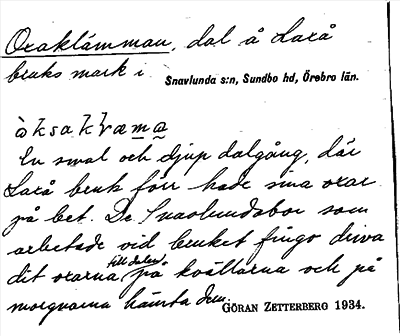 Oxaklämman, dal å Laxå
bruks mark i Snavlunda s:n, Sundbo hd, Örebro län.
En smal och djup dalgång, där
Laxå bruk förr hade sina oxar
på bet. De Snavlundabor som
arbetade vid bruket fingo driva
dit oxarna till dalen på kvällarna och på
morgnarna hämta dem.
GÖRAN ZETTERBERG 1934.